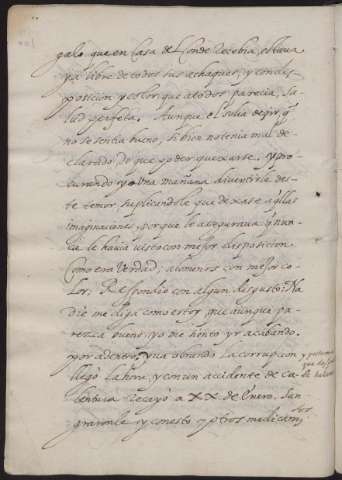 galo que en Casa de el Conde recebia, estaua
ya libre de todos sus achaques, y con dis-
posicion, y color, que a todos parecia, sa-
lud perfeta. Aunque el solia deçir, q̃
no se sentia bueno, si bien no tenia mal de-
clarado, de que poder quexarse. y pro-
curando yo Vna mañana diuertirle des-
te temor suplicandole que dexase aq̃llas
imaginaciones, porque le aseguraua q̃ nun-
ca le hauia visto con mejor disposicion
Como era Verdad; alomenos con mejor co-
lor; Respondio con algun disgusto: Na-
die me diga como estoy, que aunque pa-
rezca bueno, yo me siento yr acabando.
por adentro, yua obrando La corrupcion
llegó La hora, y con un accidente de Ca-
lentura Recayó a XX de Enero. San-
graronle y con esto y otros medicamẽ
tos